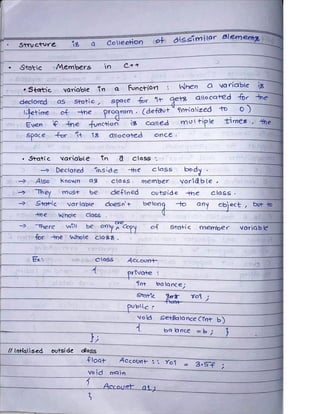 • Structure is a Collection of dissimilar elements.
• Static Members in C++
• Static variable in a Function : When a variable is
declared as static, space for it gets allocated for the
lifetime of the program. (default initialized to 0)
Even if the function is called multiple times, the
space for it is allocated once.
• Static variable in a class :
→ Declared inside the class body.
→ Also known as class member variable.
→ They must be defined outside the class.
→ Static variable doesn't belong to any object, but to
the whole class.
→ There will be only one copy of static member variable
for the whole class.
Ex: class Account
{
private :
int balance;
static float roi ;
public :
void setBalance (int b)
{ balance = b; }
};
// Initialised outside class
float Account :: roi = 3.5f ;
void main
{
Account a1;
}